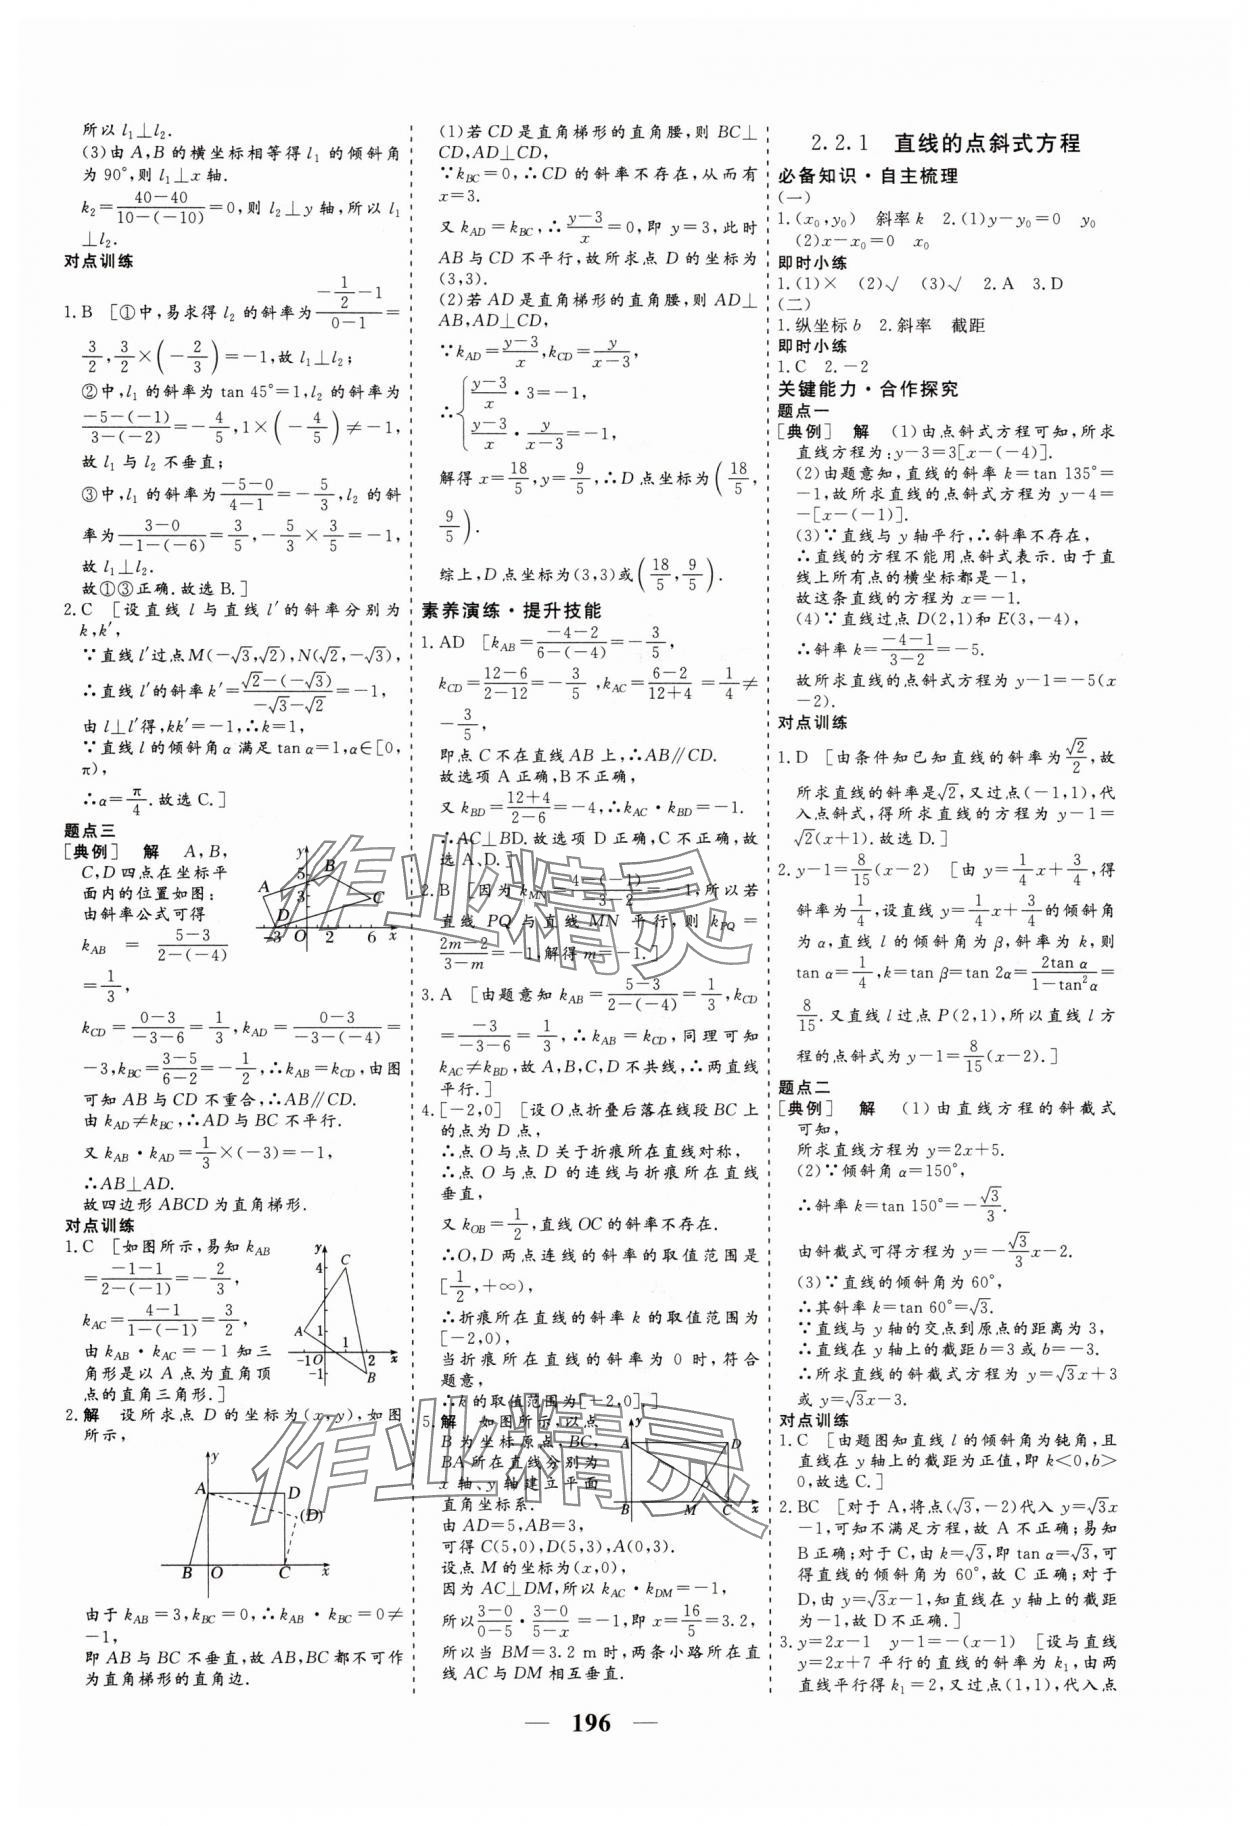 所以 l₁⊥l₂.
(3)由 A,B 的横坐标相等得 l₁ 的倾斜角
为 90°,则 l₁⊥x 轴.
k₂=(40-40)/(10-(-10))=0,则 l₂⊥y 轴,所以 l₁
⊥l₂.
对点训练
1.B [①中,易求得 l₂ 的斜率为(-1/2-1)/(0-1)=
3/2,3/2×(-2/3)=-1,故 l₁⊥l₂;
②中,l₁ 的斜率为 tan 45°=1,l₂ 的斜率为
(-5-(-1))/(3-(-2))=-4/5,1×(-4/5)≠-1,
故 l₁ 与 l₂ 不垂直;
③中,l₁ 的斜率为(-5-0)/(4-1)=-5/3,l₂ 的斜
率为(3-0)/(-1-(-6))=3/5,-5/3×3/5=-1,
故 l₁⊥l₂.
故①③正确.故选 B.]
2.C [设直线 l 与直线 l′的斜率分别为
k,k′,
∵直线 l′过点 M(-√3,√2),N(√2,-√3),
∴直线 l′的斜率 k′=(√2-(-√3))/(-√3-√2)=-1,
由 l⊥l′得,kk′=-1,∴k=1,
∵直线 l 的倾斜角 α 满足 tan α=1,α∈[0,
π),
∴α=π/4.故选 C.]
题点三
[典例] 解 A,B,
C,D 四点在坐标平
面内的位置如图:
由斜率公式可得
y
5
3
A
B
C
D
-3 O 2 6 x
k_AB = (5-3)/(2-(-4))
=1/3,
k_CD=(0-3)/(-3-6)=1/3,k_AD=(0-3)/(-3-(-4))=
-3,k_BC=(3-5)/(6-2)=-1/2,∴k_AB=k_CD,由图
可知 AB 与 CD 不重合,∴AB∥CD.
由 k_AD≠k_BC,∴AD 与 BC 不平行.
又 k_AB·k_AD=1/3×(-3)=-1,
∴AB⊥AD.
故四边形 ABCD 为直角梯形.
对点训练
1.C [如图所示,易知 k_AB
=(-1-1)/(2-(-1))=-2/3,
k_AC=(4-1)/(1-(-1))=3/2,
由 k_AB·k_AC=-1 知三
角形是以 A 点为直角顶
点的直角三角形.]
y
4
C
A
1
-1 O 1 2 x
-1
B
2.解 设所求点 D 的坐标为(x,y),如图
所示,
y
A
D
(D)
B O C x
由于 k_AB=3,k_BC=0,∴k_AB·k_BC=0≠
-1,
即 AB 与 BC 不垂直,故 AB,BC 都不可作
为直角梯形的直角边.
(1)若 CD 是直角梯形的直角腰,则 BC⊥
CD,AD⊥CD,
∵k_BC=0,∴CD 的斜率不存在,从而有
x=3.
又 k_AD=k_BC,∴(y-3)/x=0,即 y=3,此时
AB 与 CD 不平行,故所求点 D 的坐标为
(3,3).
(2)若 AD 是直角梯形的直角腰,则 AD⊥
AB,AD⊥CD,
∵k_AD=(y-3)/x,k_CD=y/(x-3),
∴{(y-3)/x·3=-1,
(y-3)/x·y/(x-3)=-1,
解得 x=18/5,y=9/5,∴D 点坐标为(18/5,
9/5).
综上,D 点坐标为(3,3)或(18/5,9/5).
素养演练·提升技能
1.AD [k_AB=(-4-2)/(6-(-4))=-3/5,
k_CD=(12-6)/(2-12)=-3/5,k_AC=(6-2)/(12+4)=1/4≠
-3/5,
即点 C 不在直线 AB 上,∴AB∥CD.
故选项 A 正确,B 不正确,
又 k_BD=(12+4)/(2-6)=-4,∴k_AC·k_BD=-1.
∴AC⊥BD.故选项 D 正确,C 不正确,故
选 A、D.]
2.B [因为 k_MN=(-4-(-1))/(3-2)=-1,所以若
直线 PQ 与直线 MN 平行,则 k_PQ=
(2m-2)/(3-m)=-1,解得 m=-1.]
3.A [由题意知 k_AB=(5-3)/(2-(-4))=1/3,k_CD
=-3/(-3-6)=1/3,∴k_AB=k_CD,同理可知
k_AC≠k_BD,故 A,B,C,D 不共线,∴两直线
平行.]
4.[-2,0] [设 O 点折叠后落在线段 BC 上
的点为 D 点,
∴点 O 与点 D 关于折痕所在直线对称,
∴点 O 与点 D 的连线与折痕所在直线
垂直,
又 k_OB=1/2,直线 OC 的斜率不存在.
∴O,D 两点连线的斜率的取值范围是
[1/2,+∞),
∴折痕所在直线的斜率 k 的取值范围为
[-2,0),
当折痕所在直线的斜率为 0 时,符合
题意,
∴k 的取值范围为[-2,0].]
5.解 如图所示,以点
B 为坐标原点,BC,
BA 所在直线分别为
x 轴、y 轴建立平面
直角坐标系.
y
A D
B M C x
由 AD=5,AB=3,
可得 C(5,0),D(5,3),A(0,3).
设点 M 的坐标为(x,0),
因为 AC⊥DM,所以 k_AC·k_DM=-1,
所以(3-0)/(0-5)·(3-0)/(5-x)=-1,即 x=16/5=3.2,
所以当 BM=3.2 m时,两条小路所在直
线 AC 与 DM 相互垂直.
2.2.1 直线的点斜式方程
必备知识·自主梳理
(一)
1.(x₀,y₀) 斜率 k 2.(1)y-y₀=0 y₀
(2)x-x₀=0 x₀
即时小练
1.(1)× (2)√ (3)√ 2.A 3.D
(二)
1.纵坐标 b 2.斜率 截距
即时小练
1.C 2.-2
关键能力·合作探究
题点一
[典例] 解 (1)由点斜式方程可知,所求
直线方程为:y-3=3[x-(-4)].
(2)由题意知,直线的斜率 k=tan 135°=
-1,故所求直线的点斜式方程为 y-4=
-[x-(-1)].
(3)∵直线与 y 轴平行,∴斜率不存在,
∴直线的方程不能用点斜式表示.由于直
线上所有点的横坐标都是-1,
故这条直线的方程为 x=-1.
(4)∵直线过点 D(2,1)和 E(3,-4),
∴斜率 k=(-4-1)/(3-2)=-5.
故所求直线的点斜式方程为 y-1=-5(x
-2).
对点训练
1.D [由条件知已知直线的斜率为√2/2,故
所求直线的斜率是√2,又过点(-1,1),代
入点斜式,得所求直线的方程为 y-1=
√2(x+1).故选 D.]
2.y-1=8/15(x-2) [由 y=1/4x+3/4,得
斜率为1/4,设直线 y=1/4x+3/4的倾斜角
为 α,直线 l 的倾斜角为 β,斜率为 k,则
tan α=1/4,k=tan β=tan 2α=2tan α/(1-tan²α)=
8/15.又直线 l 过点 P(2,1),所以直线 l 方
程的点斜式为 y-1=8/15(x-2).]
题点二
[典例] 解 (1)由直线方程的斜截式
可知,
所求直线方程为 y=2x+5.
(2)∵倾斜角 α=150°,
∴斜率 k=tan 150°=-√3/3.
由斜截式可得方程为 y=-√3/3x-2.
(3)∵直线的倾斜角为 60°,
∴其斜率 k=tan 60°=√3.
∵直线与 y 轴的交点到原点的距离为 3,
∴直线在 y 轴上的截距 b=3 或 b=-3.
∴所求直线的斜截式方程为 y=√3x+3
或 y=√3x-3.
对点训练
1.C [由题图知直线 l 的倾斜角为钝角,且
直线在 y 轴上的截距为正值,即 k<0,b>
0,故选 C.]
2.BC [对于 A,将点(√3,-2)代入 y=√3x
-1,可知不满足方程,故 A 不正确;易知
B 正确;对于 C,由 k=√3,即 tan α=√3,可
得直线的倾斜角为 60°,故 C 正确;对于
D,由 y=√3x-1,知直线在 y 轴上的截距
为-1,故 D 不正确.]
3.y=2x-1 y-1=-(x-1) [设与直线
y=2x+7 平行的直线的斜率为 k₁,由两
直线平行得 k₁=2,又过点(1,1),代入点
— 196 —
作业精灵
作业精灵